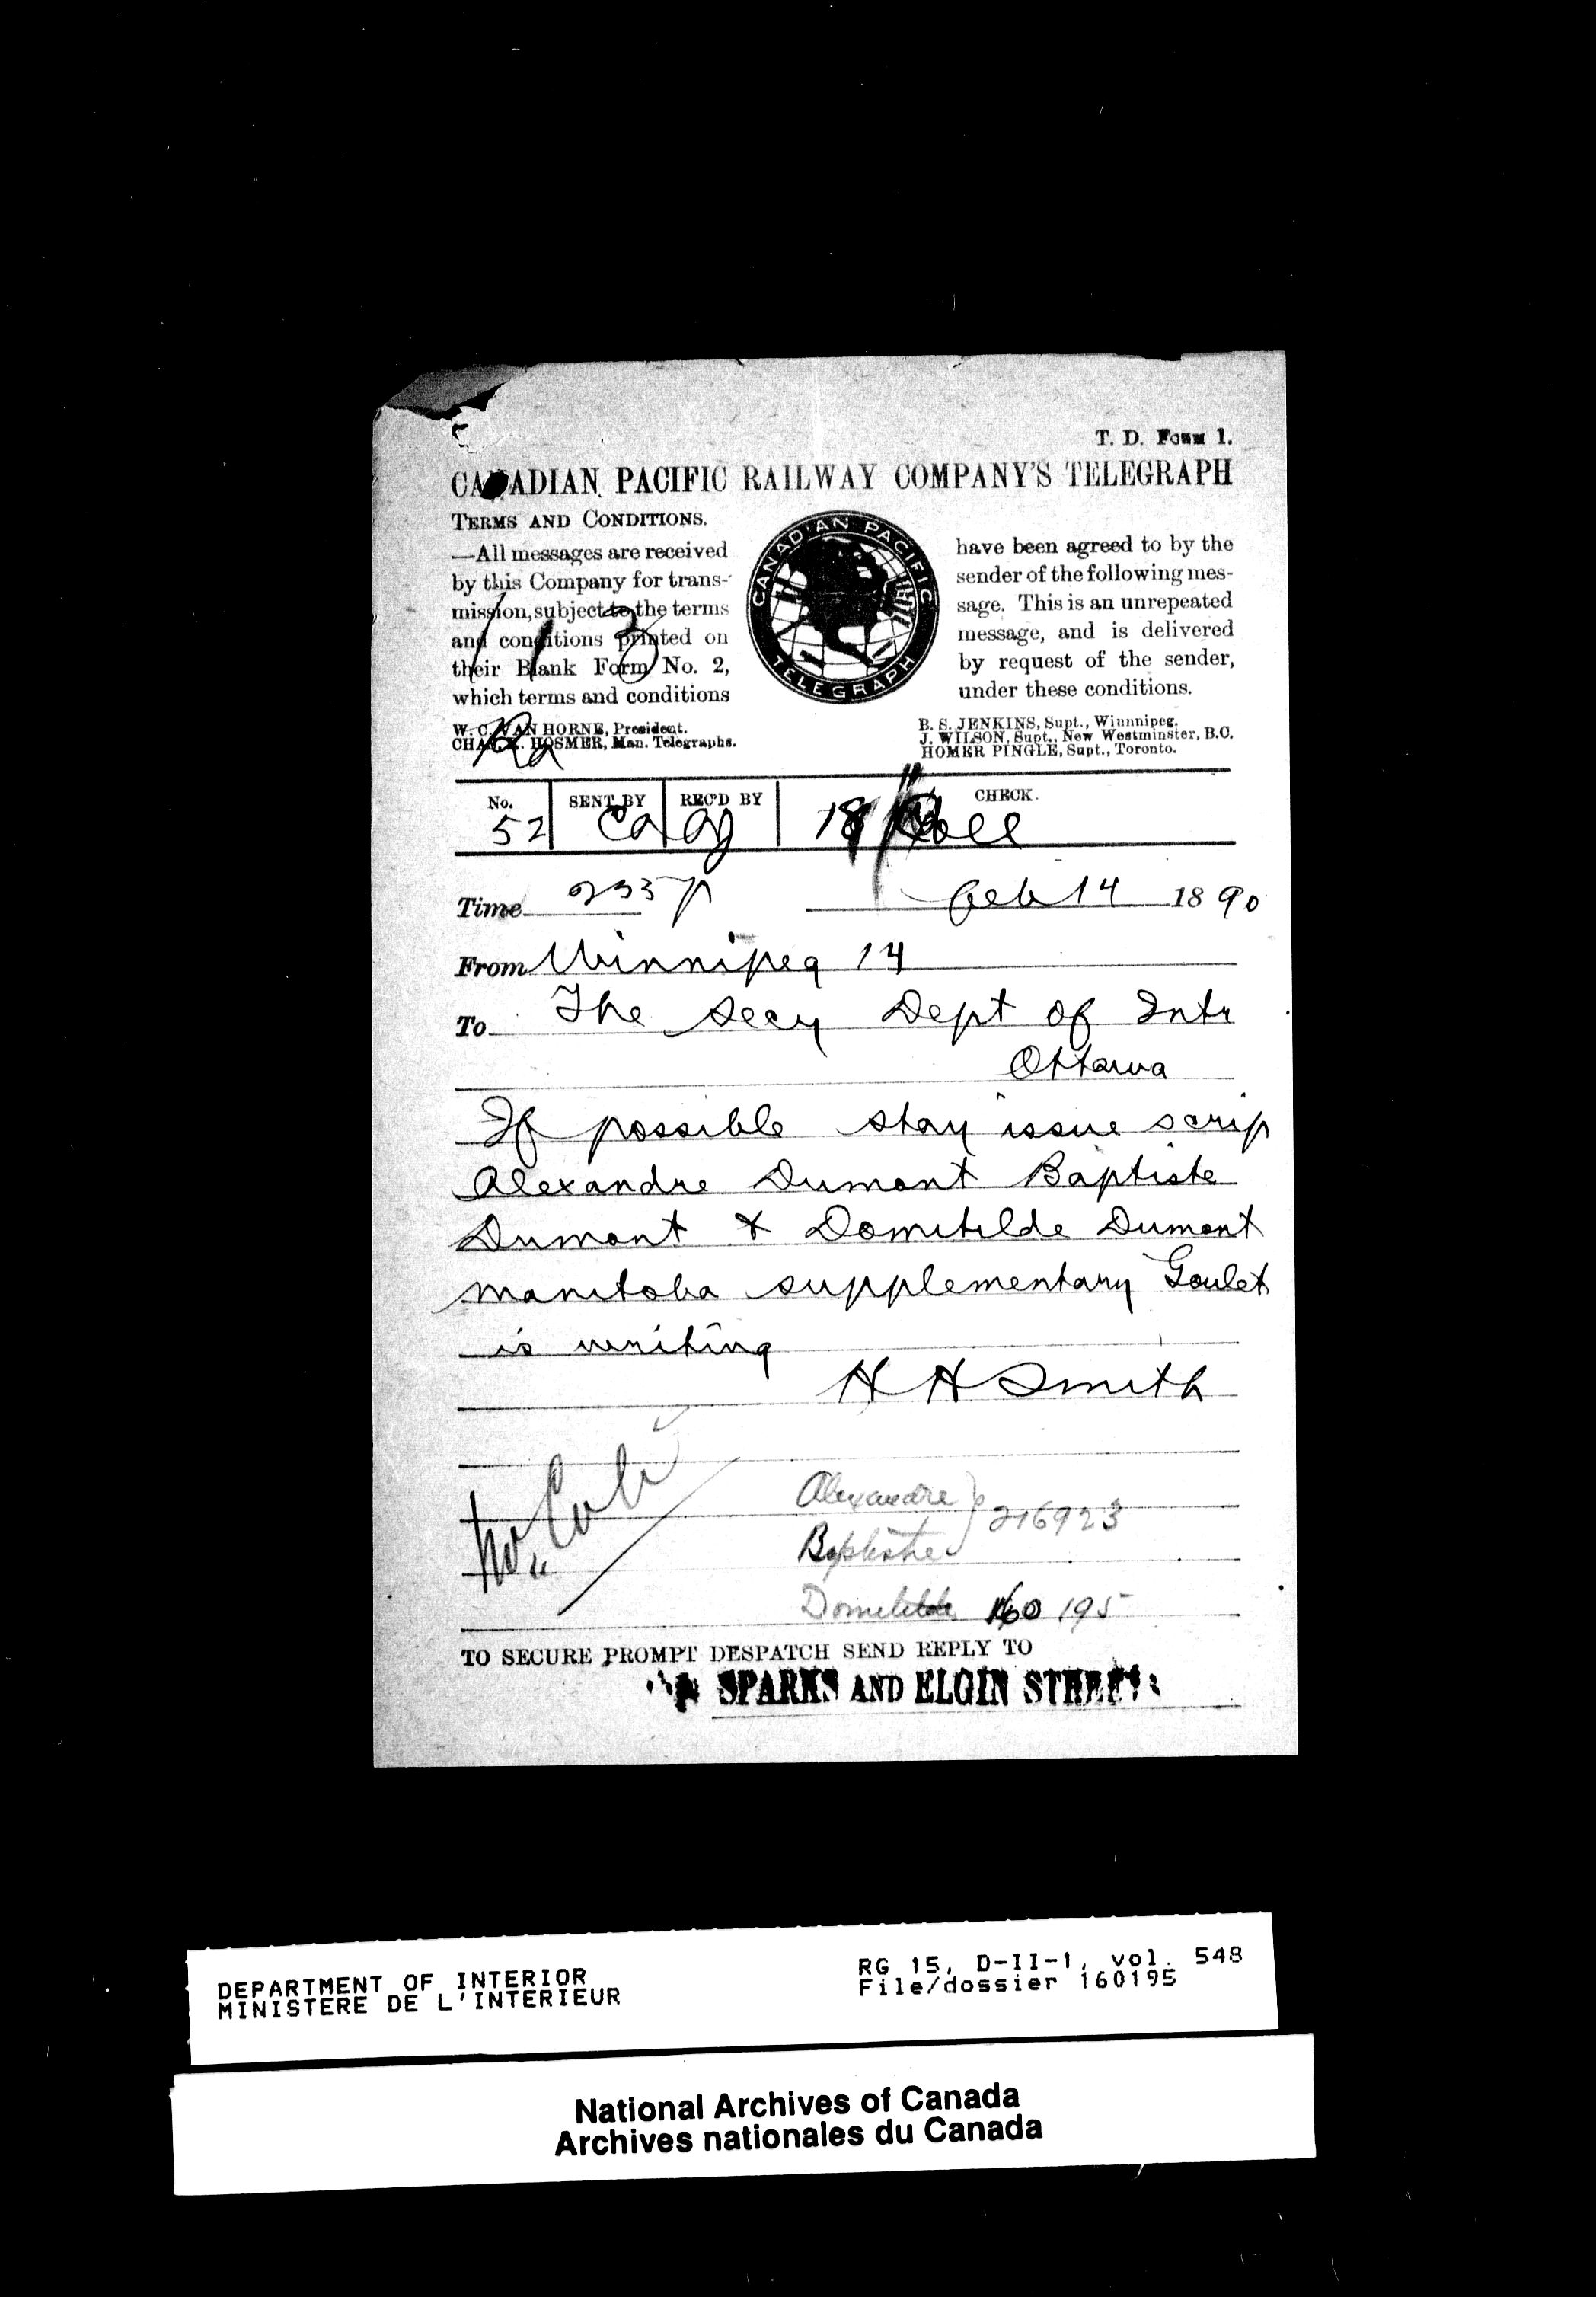 T. D. FORM 1.
CANADIAN PACIFIC RAILWAY COMPANY'S TELEGRAPH
TERMS AND CONDITIONS.
—All messages are received
by this Company for trans-
mission, subject to the terms
and conditions printed on
their Blank Form No. 2,
which terms and conditions
CANADIAN PACIFIC
TELEGRAPH
have been agreed to by the
sender of the following mes-
sage. This is an unrepeated
message, and is delivered
by request of the sender,
under these conditions.
W. C. VAN HORNE, President.
CHAS. R. HOSMER, Man. Telegraphs.
B. S. JENKINS, Supt., Winnnipeg.
J. WILSON, Supt., New Westminster, B.C.
HOMER PINGLE, Supt., Toronto.
No. SENT BY REC'D BY CHECK.
52 Ca 18 Coll
Time 235 p Feb 14 1890
From Winnipeg 14
To The Secy Dept of Intr
Ottawa
If possible stay issue scrip
Alexandre Dumont Baptiste
Dumont & Domitilde Dumont
Manitoba supplementary Goulet
is writing
H H Smith
Alexandre } 216923
Baptiste
Domitilde 160195
TO SECURE PROMPT DESPATCH SEND REPLY TO
SPARKS AND ELGIN STREETS
DEPARTMENT OF INTERIOR
MINISTERE DE L'INTERIEUR
RG 15, D-II-1, vol. 548
File/dossier 160195
National Archives of Canada
Archives nationales du Canada